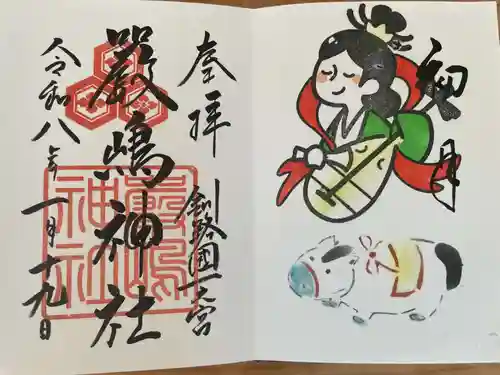 奉拝
釧路國一之宮
嚴嶋神社
令和八年一月十九日
嚴嶋
神社